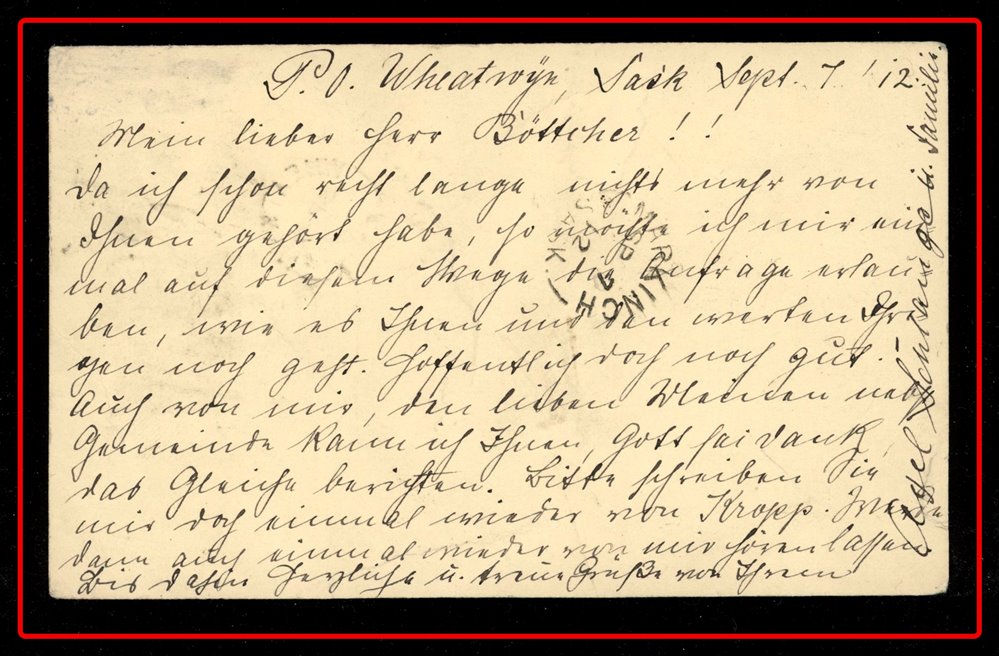 P. O. Wheatwyn, Sask Sept. 7./12.
Mein lieber Herr Böttcher!!
Da ich schon recht lange nichts mehr von
Ihnen gehört habe, so möchte ich mir ein
mal auf diesem Wege die Anfrage erlau
ben, wie es Ihnen und den werten Ihri
gen noch geht. Hoffentlich doch noch gut. -
Auch von mir, den lieben Meinen nebst
Gemeinde kann ich Ihnen, Gott sei dank,
das Gleiche berichten. Bitte schreiben Sie
mir doch einmal wieder von Kropp. Werde
dann auch einmal wieder von mir hören lassen.
Bis dahin herzliche u. treue Grüße von Ihrem
u. Familie.
SP 7
12
SASK.